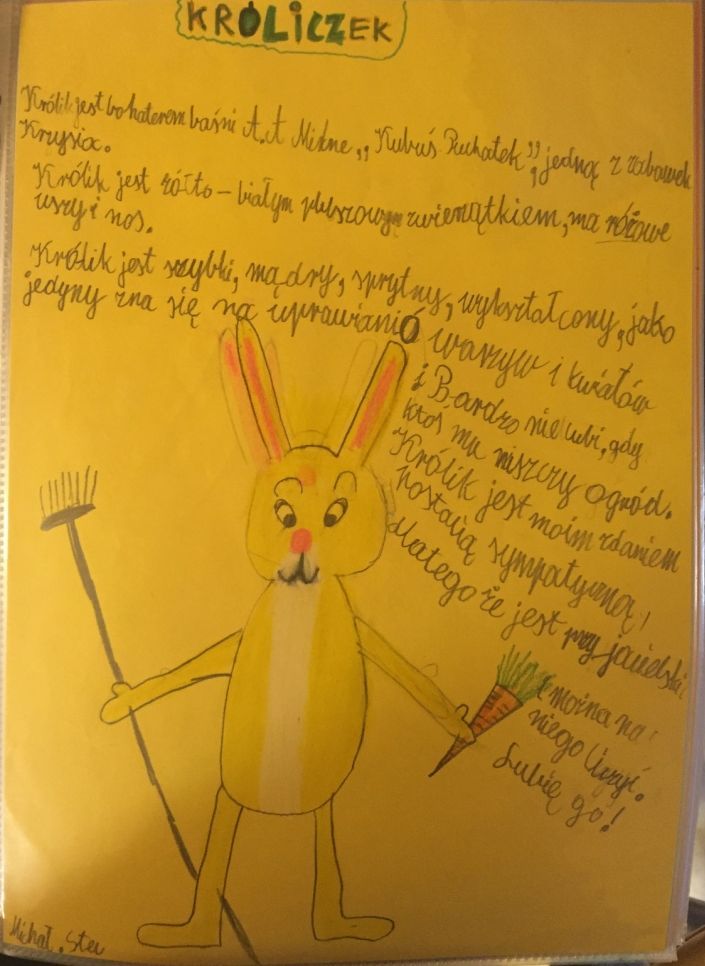 KRÓLICZEK
Królik jest bohaterem baśni A.A Milne „Kubuś Puchatek”, jedną z zabawek
Krzysia.
Królik jest żółto – białym pluszowym zwierzątkiem, ma różowe
uszy i nos.
Królik jest szybki, mądry, sprytny, wykształcony, jako
jedyny zna się na uprawianió warzyw i kwiatów
i Bardzo nie lubi, gdy
ktoś mu niszczy ogród.
Królik jest moim zdaniem
postacią sympatyczną,
dlatego że jest przyjacielski
i można na
niego liczyć.
Lubię go!
Michał